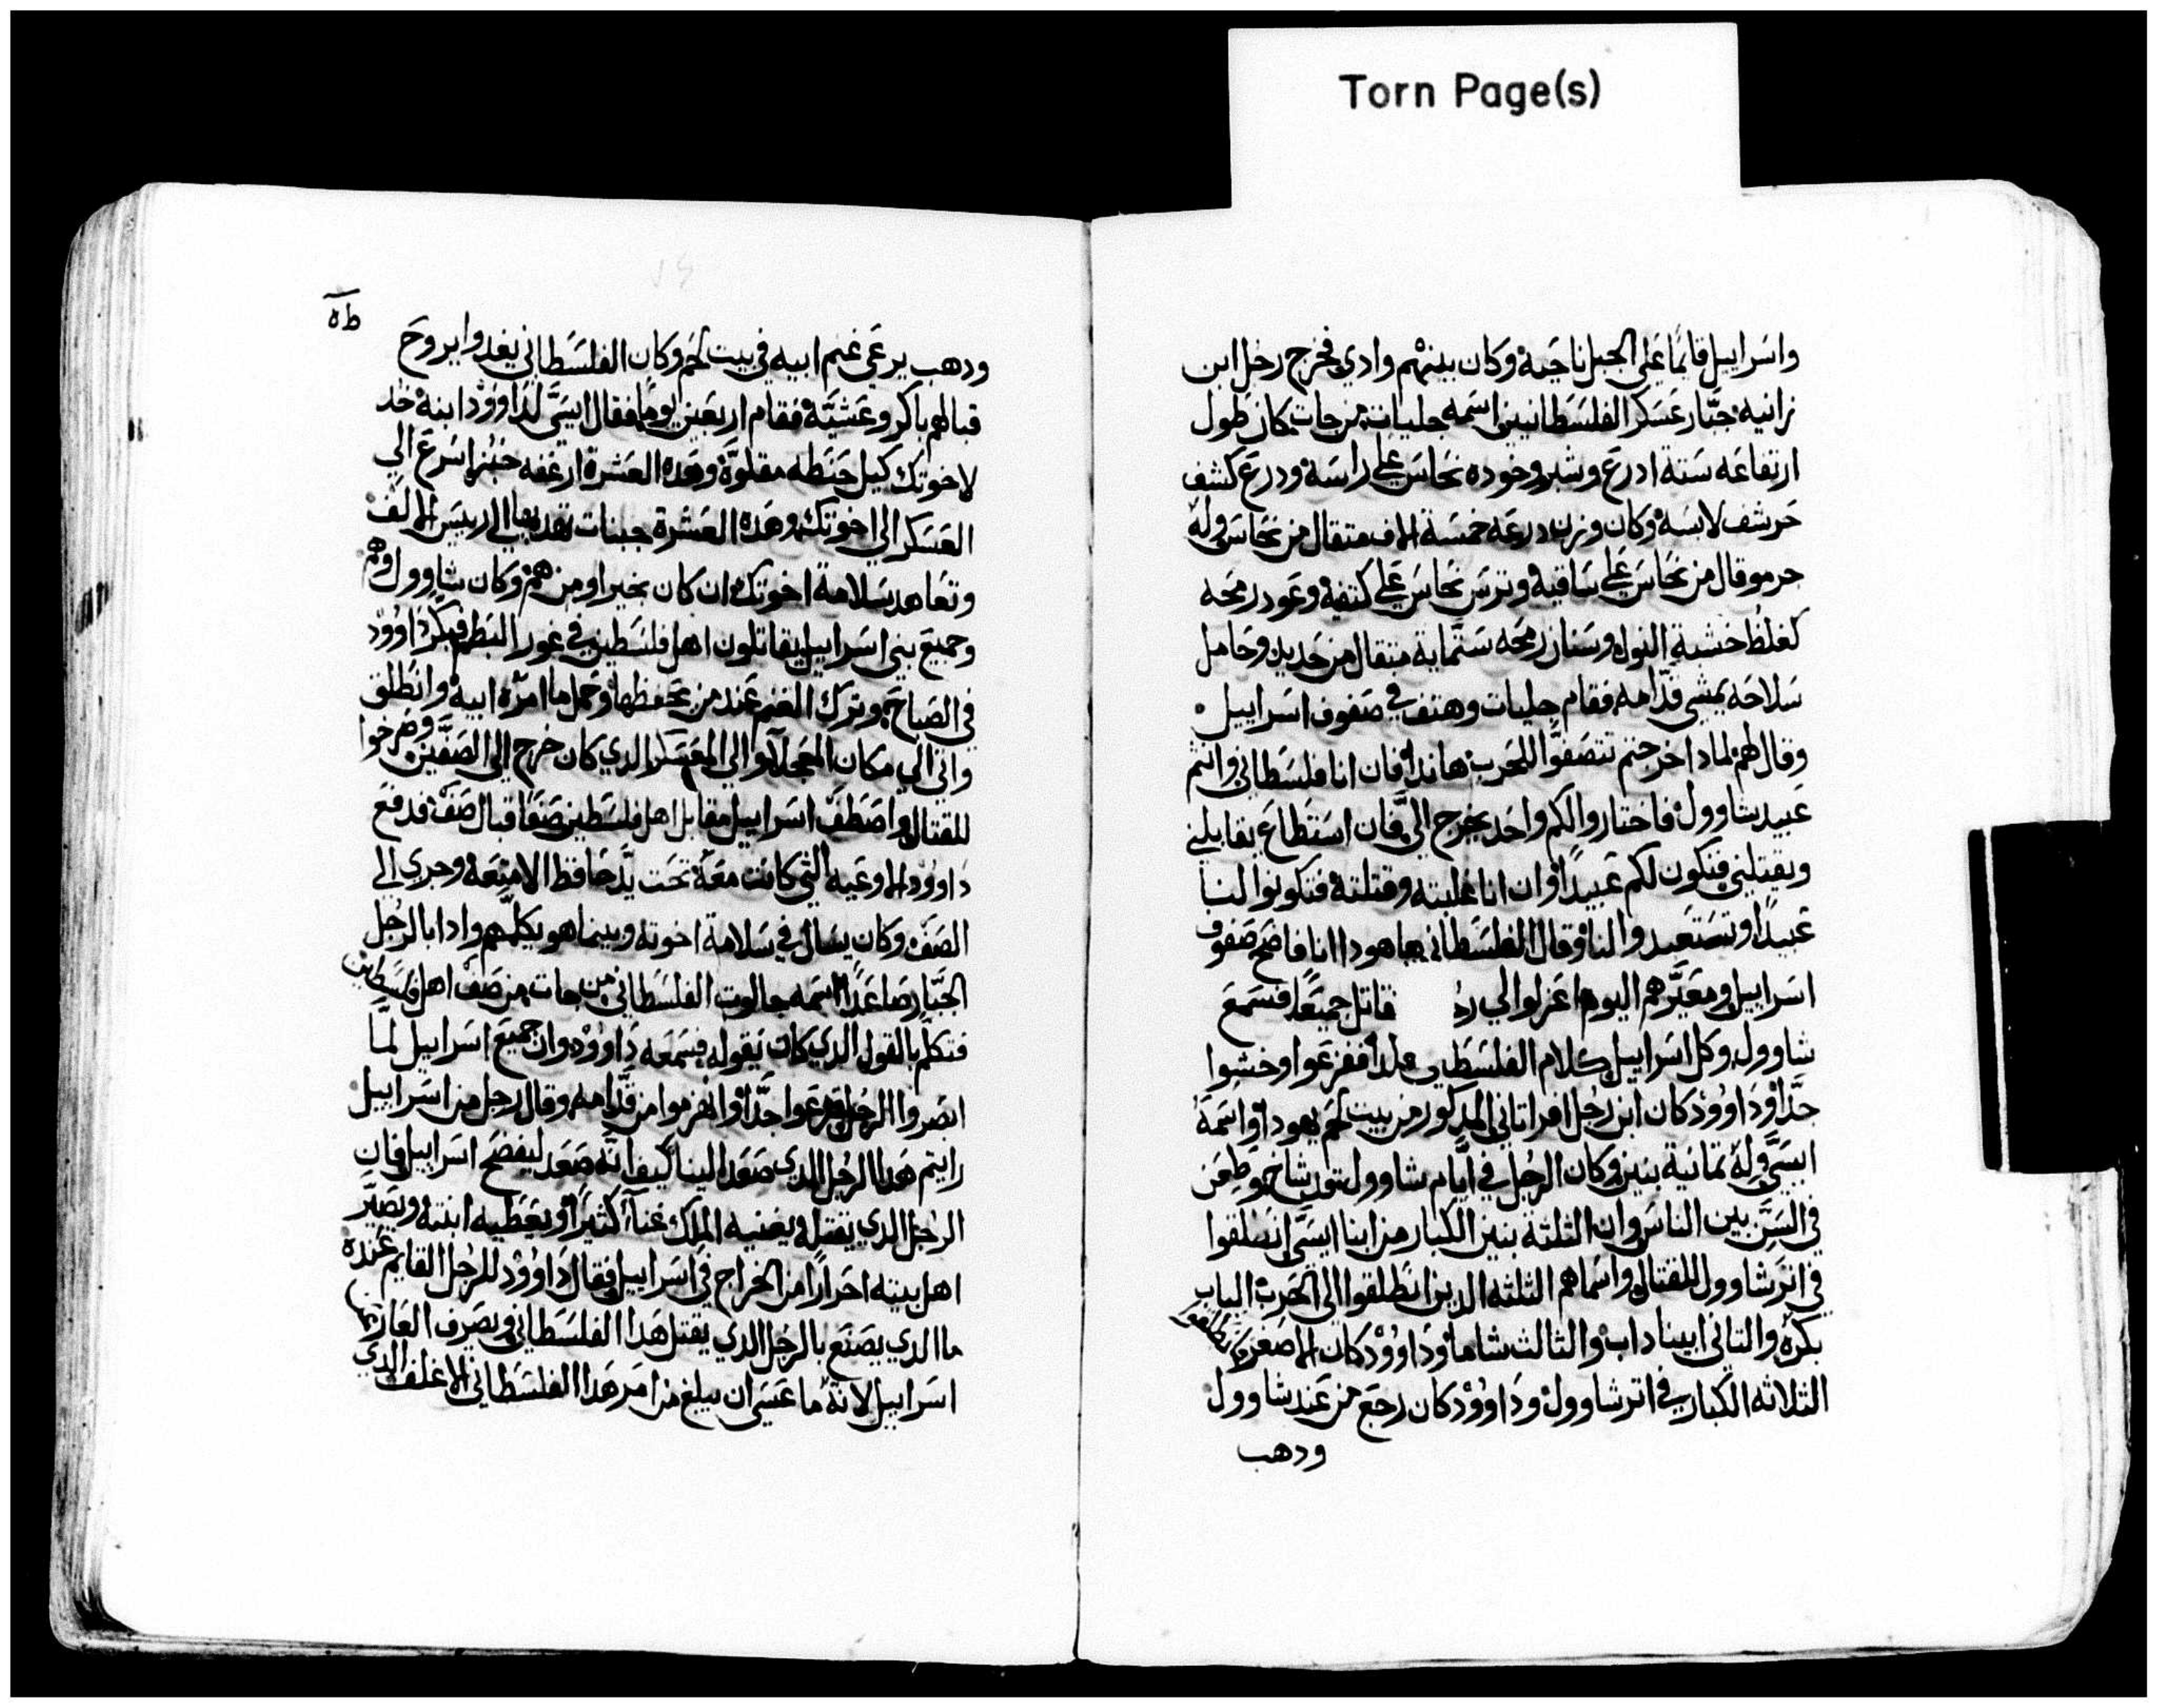 Torn Page(s)
واسراييل قايمًا على الجبل ناحية وكان بينهم وادي فخرج رجل ابن
زانيه جبّار عسكر الفلسطانيين اسمه جليات من جات كان طول
ارتفاعه ستة ادرع وشبر وخوده نحاس على راسه ودرع كشف
حرشف لابسه وكان وزن درعه خمسة الاف متقال من نحاس وله
جرموقال من نحاس على ساقيه وترس نحاس على كتفيه وعود رمحه
كغلظ خشبة النول وسنان رمحه ستماية متقال من حديد وحامل
سلاحه يمشي قدّامه فقام جليات وهتف في صفوف اسراييل
وقال لهم لمادا خرجتم تتصفّوا للحرب هاندا فان انا فلسطاني وانتم
عبيد شاوول فاختاروا لكم واحد يخرج اليّ فان استطاع يقابلني
ويقتلني فنكون لكم عبيدًا وان انا غلبته وقتلته فتكونوا لنا
عبيدًا وتستعبدوا لنا وقال الفلسطاني هاهودا انا فاضح صفوف
اسراييل ومعيّرهم اليوم اعزلوا لي رج قاتل جميعًا فسمع
شاوول وكل اسراييل كلام الفلسطي هدا ففزعوا وخشوا
جدًّا وداوود كان ابن رجل افراتاني المدكور من بيت لحم يهودا واسمه
ايسّي وله تمانية بنين وكان الرجل في ايّام شاوول قد شاخ وطعن
في السن بين الناس وان الثلثة بنين الكبار من ابنا ايسّي انطلقوا
في اتر شاوول للقتال واسماهم الثلثه الدين انطلقوا الى الحرب الياب
بكره والتاني ابيناداب والثالث شاما وداوود كان الاصغر وانطلقوا
الثلاثه الكبار في اتر شاوول وداوود كان رجع من عند شاوول
ودهب
ودهب يرعى غنم ابيه في بيت لحم وكان الفلسطاني يغدوا يروح
قبالهم باكر وعشيّة فقام اربعين يومًا فقال ايسّي لداوود ابنه خد
لاخوتك كيل حنطه مقلوّة وهده العشرة ارغفه خبز اسرع الي
العسكر الى اخوتك وهده العشرة جبنات تقديها الى رييس الالف
وتعاهد سلامة اخوتك ان كان بخير او من هم وكان شاوول وهم
وجميع بني اسراييل يقاتلون اهل فلسطين في غور البطم فبكر داوود
في الصباح وترك الغنم عند من يحفظها وحمل ما امره ابيه وانطلق
واتى الى مكان العجلة والي المعسكر الدي كان خرج الى الصفّين وصرخوا
للقتال واصطف اسراييل مقابل اهل فلسطين صفًا قبال صف فدفع
داوود الاوعيه التي كانت معه تحت يد حافظ الامتعة وجري الى
الصف وكان يسال في سلامة اخوته وبينما هو يكلمهم وادا بالرجل
الجبّار صاعدًا اسمه جالوت الفلسطاني من جات من صف اهل فلسطين
فتكلّم بالقول الدي كان يقوله فسمعه داوود وان جميع اسراييل لمّا
ابصروا الرجل فزعوا جدًّا وانهزموا من قدّامه وقال رجل من اسراييل
رايتم هدا الرجل الدي صعد الينا كيف انّه صعد ليفضح اسراييل فان
الرجل الدي يقتله يغنيه الملك غناً كثيرًا ويعطيه ابنته ويصيّر
اهل بيته احرارًا من الخراج في اسراييل فقال داوود للرجل القايم عنده
ما الدي يصنع بالرجل الدي يقتل هدا الفلسطاني ويصرف العار من
اسراييل لانه ما عسى ان يبلغ من امر هدا الفلسطاني الاغلف الدي